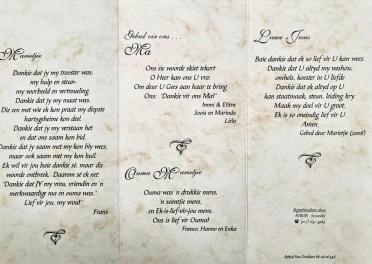 Marietjie
Dankie dat jy my trooster was.
my hulp en steun-
my voorbeeld en vertroueling.
Dankie dat jy my maat was.
Die een met wie ek kon praat my diepste
hartsgeheime kon deel.
Dankie dat jy my verstaan het
en dat ons saam kon bid.
Dankie dat jy saam met my kon bly wees.
maar ook saam met my kon huil.
Ek wil vir jou baie dankie sê. maar die
woorde ontbreek. Daarom sê ek net:
'Dankie dat JY my vrou, vriendin en 'n
merkwaardige ma en ouma was.'
Lief vir jou, my vrou!'
Frans
Gebed vir ons . . .
Ma
Ons sie woorde skiet tekort
O Heer kan ons U vra:
Om deur U Gees aan haar te bring
Ons: 'Dankie vir ons Ma!'
Immi & Etiëne
Soois en Marinda
Lida
Ouma Marietjie
Ouma was 'n drukkie mens,
'n soentjie mens,
en Ek-is-lief-vir-jou mens.
Ons is lief vir Ouma!
Franco, Hanno en Enka
Liewe Jesus
Baie dankie dat ek so lief vir U kan wees.
Dankie dat U altyd my vashou,
omhels, koester in U liefde
Dankie dat ek altyd op U
kan staatmaak, steun, leiding kry.
Maak my doel vir U groot,
Ek is so oneindig lief vir U
Amen
Gebed deur Marietjie (2008)
Begrafnisdiens deur:
AVBOB